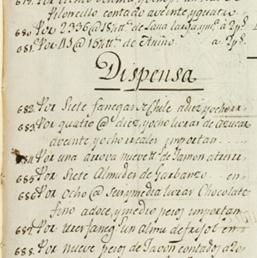 Piloncillo contado aveinte, yquatro
680. Por 2336@18 de Lana larga
681. Por 113@15 de Añino.
Dispensa.
682. Por Siete fanegas Chile adiez, yocho rr
683. Por quatro @ diez, yocho livras de Azucar
aveinte, yocho reales importan
684. Por una arrova nueve de Jamon atreze
685. Por Siete Almudes de Garbanzo en
686. Por ocho @ Seis ymedia livras Chocolate
fino adoce, ymedio pesos importan
687. Por tres faneg un almu de frijol en
688. Por nueve pesos de Javon contados a